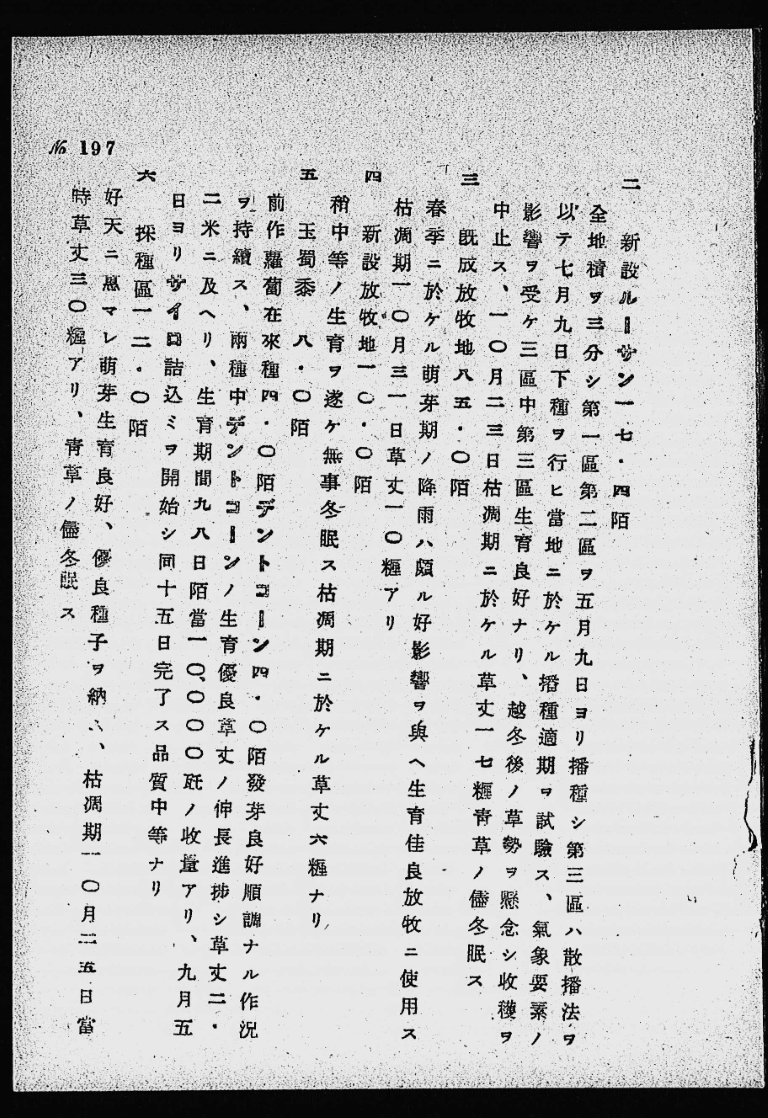 № 197
二　新設ルーサン一七・四陌
全地積ヲ三分シ第一區第二區ヲ五月九日ヨリ播種シ第三區ハ散播法ヲ
以テ七月九日下種ヲ行ヒ當地ニ於ケル播種適期ヲ試驗ス、氣象要素ノ
影響ヲ受ケ三區中第三區生育良好ナリ、越冬後ノ草勢ヲ懸念シ收穫ヲ
中止ス、一〇月二三日枯凋期ニ於ケル草丈一七糎靑草ノ儘冬眠ス
三　既成放牧地八五・〇陌
春季ニ於ケル萌芽期ノ降雨ハ頗ル好影響ヲ與ヘ生育佳良放牧ニ使用ス
枯凋期一〇月三一日草丈一〇糎アリ
四　新設放牧地一〇・〇陌
稍中等ノ生育ヲ遂ケ無事冬眠ス枯凋期ニ於ケル草丈六糎ナリ
五　玉蜀黍　八・〇陌
前作蘿蔔在來種四・〇陌デントコーン四・〇陌發芽良好順調ナル作況
ヲ持續ス、兩種中デントコーンノ生育優良草丈ノ伸長進捗シ草丈二・
二米ニ及ヘリ、生育期間九八日陌當一〇、〇〇〇瓩ノ收量アリ、九月五
日ヨリサイロ詰込ミヲ開始シ同十五日完了ス品質中等ナリ
六　採種區一二・〇陌
好天ニ惠マレ萌芽生育良好、優良種子ヲ納ム、枯凋期一〇月二五日當
時草丈三〇糎アリ、靑草ノ儘冬眠ス